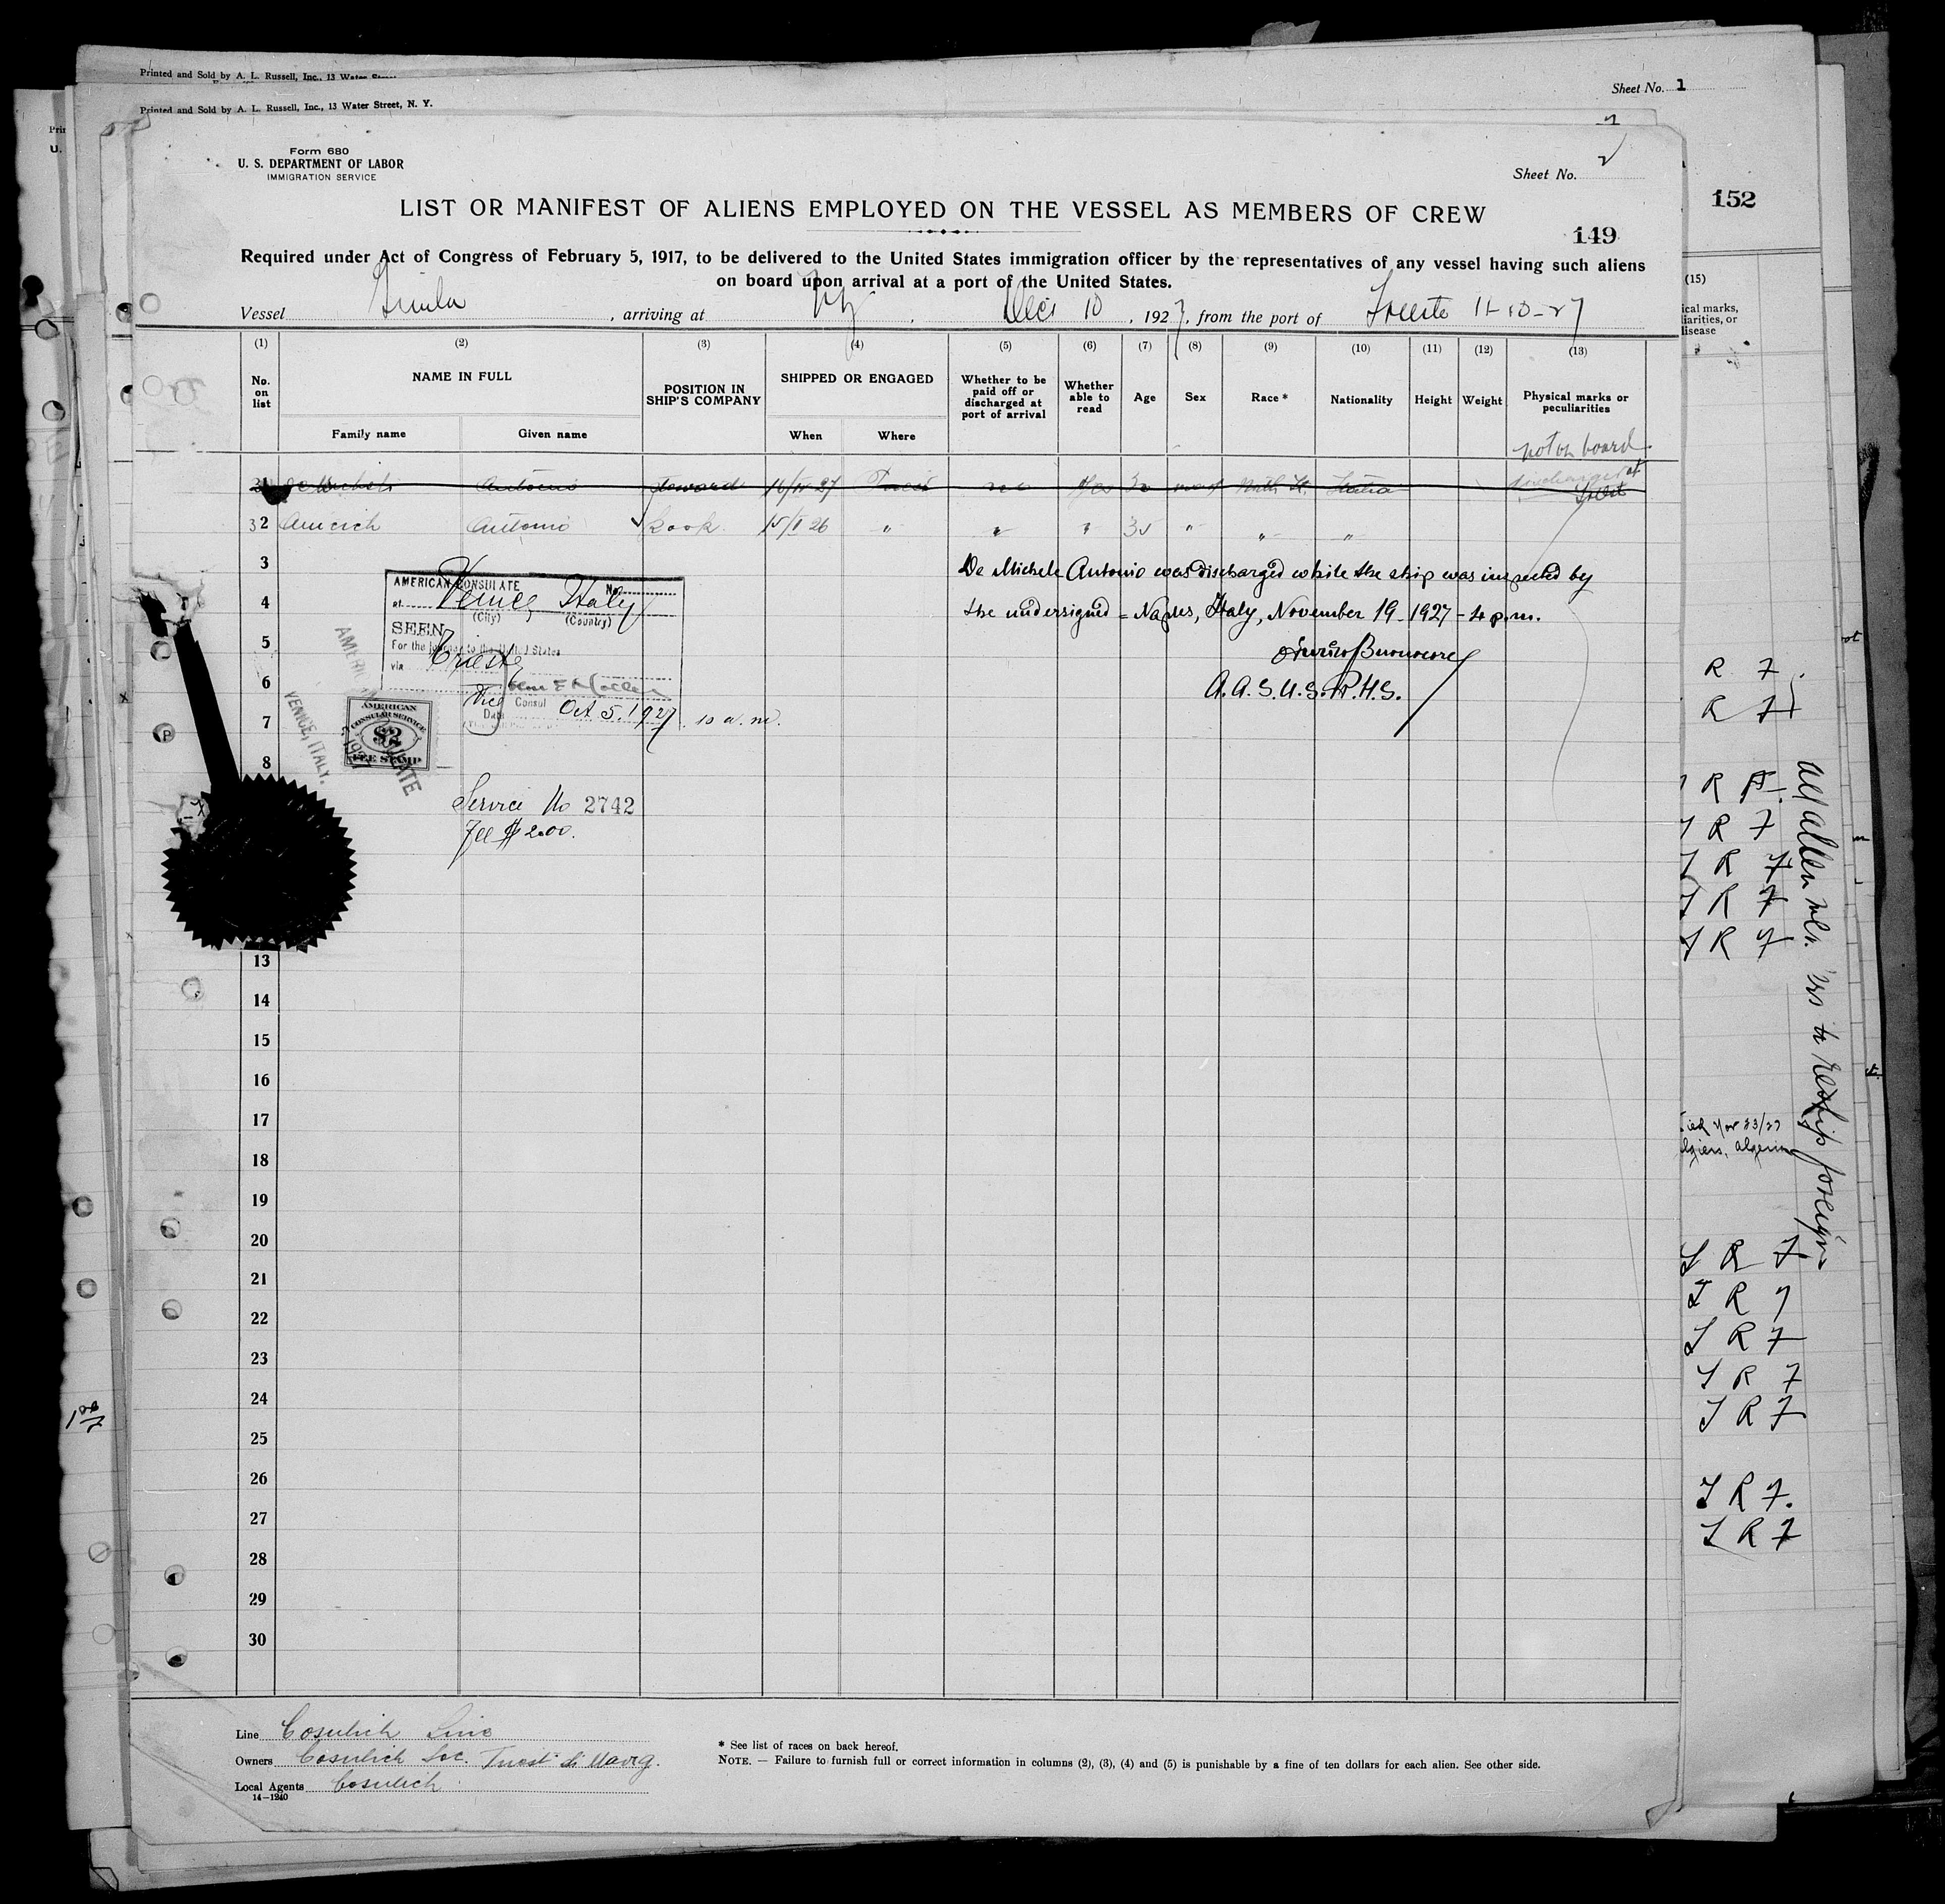 Printed and Sold by A. L. Russell, Inc., 13 Water
Printed and Sold by A. L. Russell, Inc., 13 Water Street, N. Y.
Sheet No. 1
Form 680
U. S. DEPARTMENT OF LABOR
IMMIGRATION SERVICE
Sheet No. 2
LIST OR MANIFEST OF ALIENS EMPLOYED ON THE VESSEL AS MEMBERS OF CREW
152
149
Required under Act of Congress of February 5, 1917, to be delivered to the United States immigration officer by the representatives of any vessel having such aliens
on board upon arrival at a port of the United States.
Vessel , arriving at NY , Dec 10 , 1927, from the port of Trieste 11-10-27
(1) (2) (3) (4) (5) (6) (7) (8) (9) (10) (11) (12) (13)
No. on list
NAME IN FULL
Family name
Given name
POSITION IN SHIP'S COMPANY
SHIPPED OR ENGAGED
When
Where
Whether to be paid off or discharged at port of arrival
Whether able to read
Age
Sex
Race *
Nationality
Height
Weight
Physical marks or peculiarities
(15)
ical marks,
liarities, or
disease
not on board
discharged at
De Michele Antonio Steward no Yes 30 Italia
32 Antonio Cook 15/ 26 " " " " " "
3
De Michele Antonio was discharged while the ship was inspected by
4
the undersigned = Naples, Italy, November 19 - 1927 - 4 p.m.
5
Buonocore
6
A. A. S. U. S. P. H. S.
7
8
AMERICAN CONSULATE No.
at Venice, Italy
(City) (Country)
SEEN
For the journey to the United States
via Trieste
Vice Consul
Date Oct 5, 1927. 10 a.m.
AMERICAN
CONSULAR SERVICE
$2
FEE STAMP
VENICE, ITALY.
Service No 2742
Fee $2.00.
13
14
15
16
17
18
19
20
21
22
23
24
25
26
27
28
29
30
R 7
R 7
R
R 7
R 7
R 7
R 7
Nov 23/27
Algiers, Algeria
R 7
R 7
R 7
R 7
R 7
R 7
R 7
to reship foreign
Line Cosulich Line
Owners Cosulich Soc. Triest. di Navig.
Local Agents Cosulich
14—1240
* See list of races on back hereof.
NOTE. — Failure to furnish full or correct information in columns (2), (3), (4) and (5) is punishable by a fine of ten dollars for each alien. See other side.